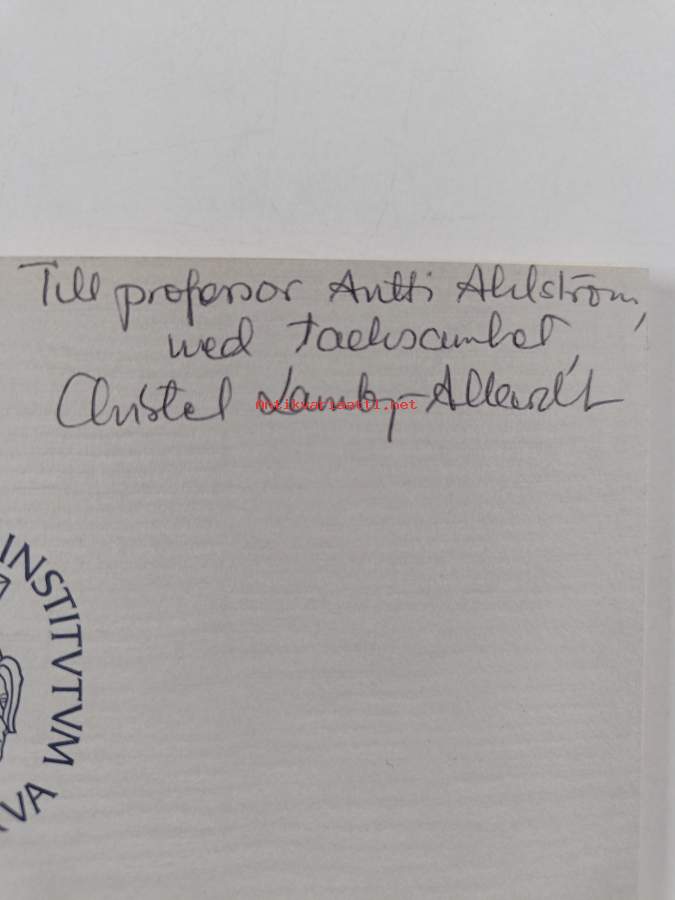 Till professor Antti Ahlström,
med tacksamhet,
Christel Lamby-Allardt
Antikvariaatti.net
INSTITVTVM
VA